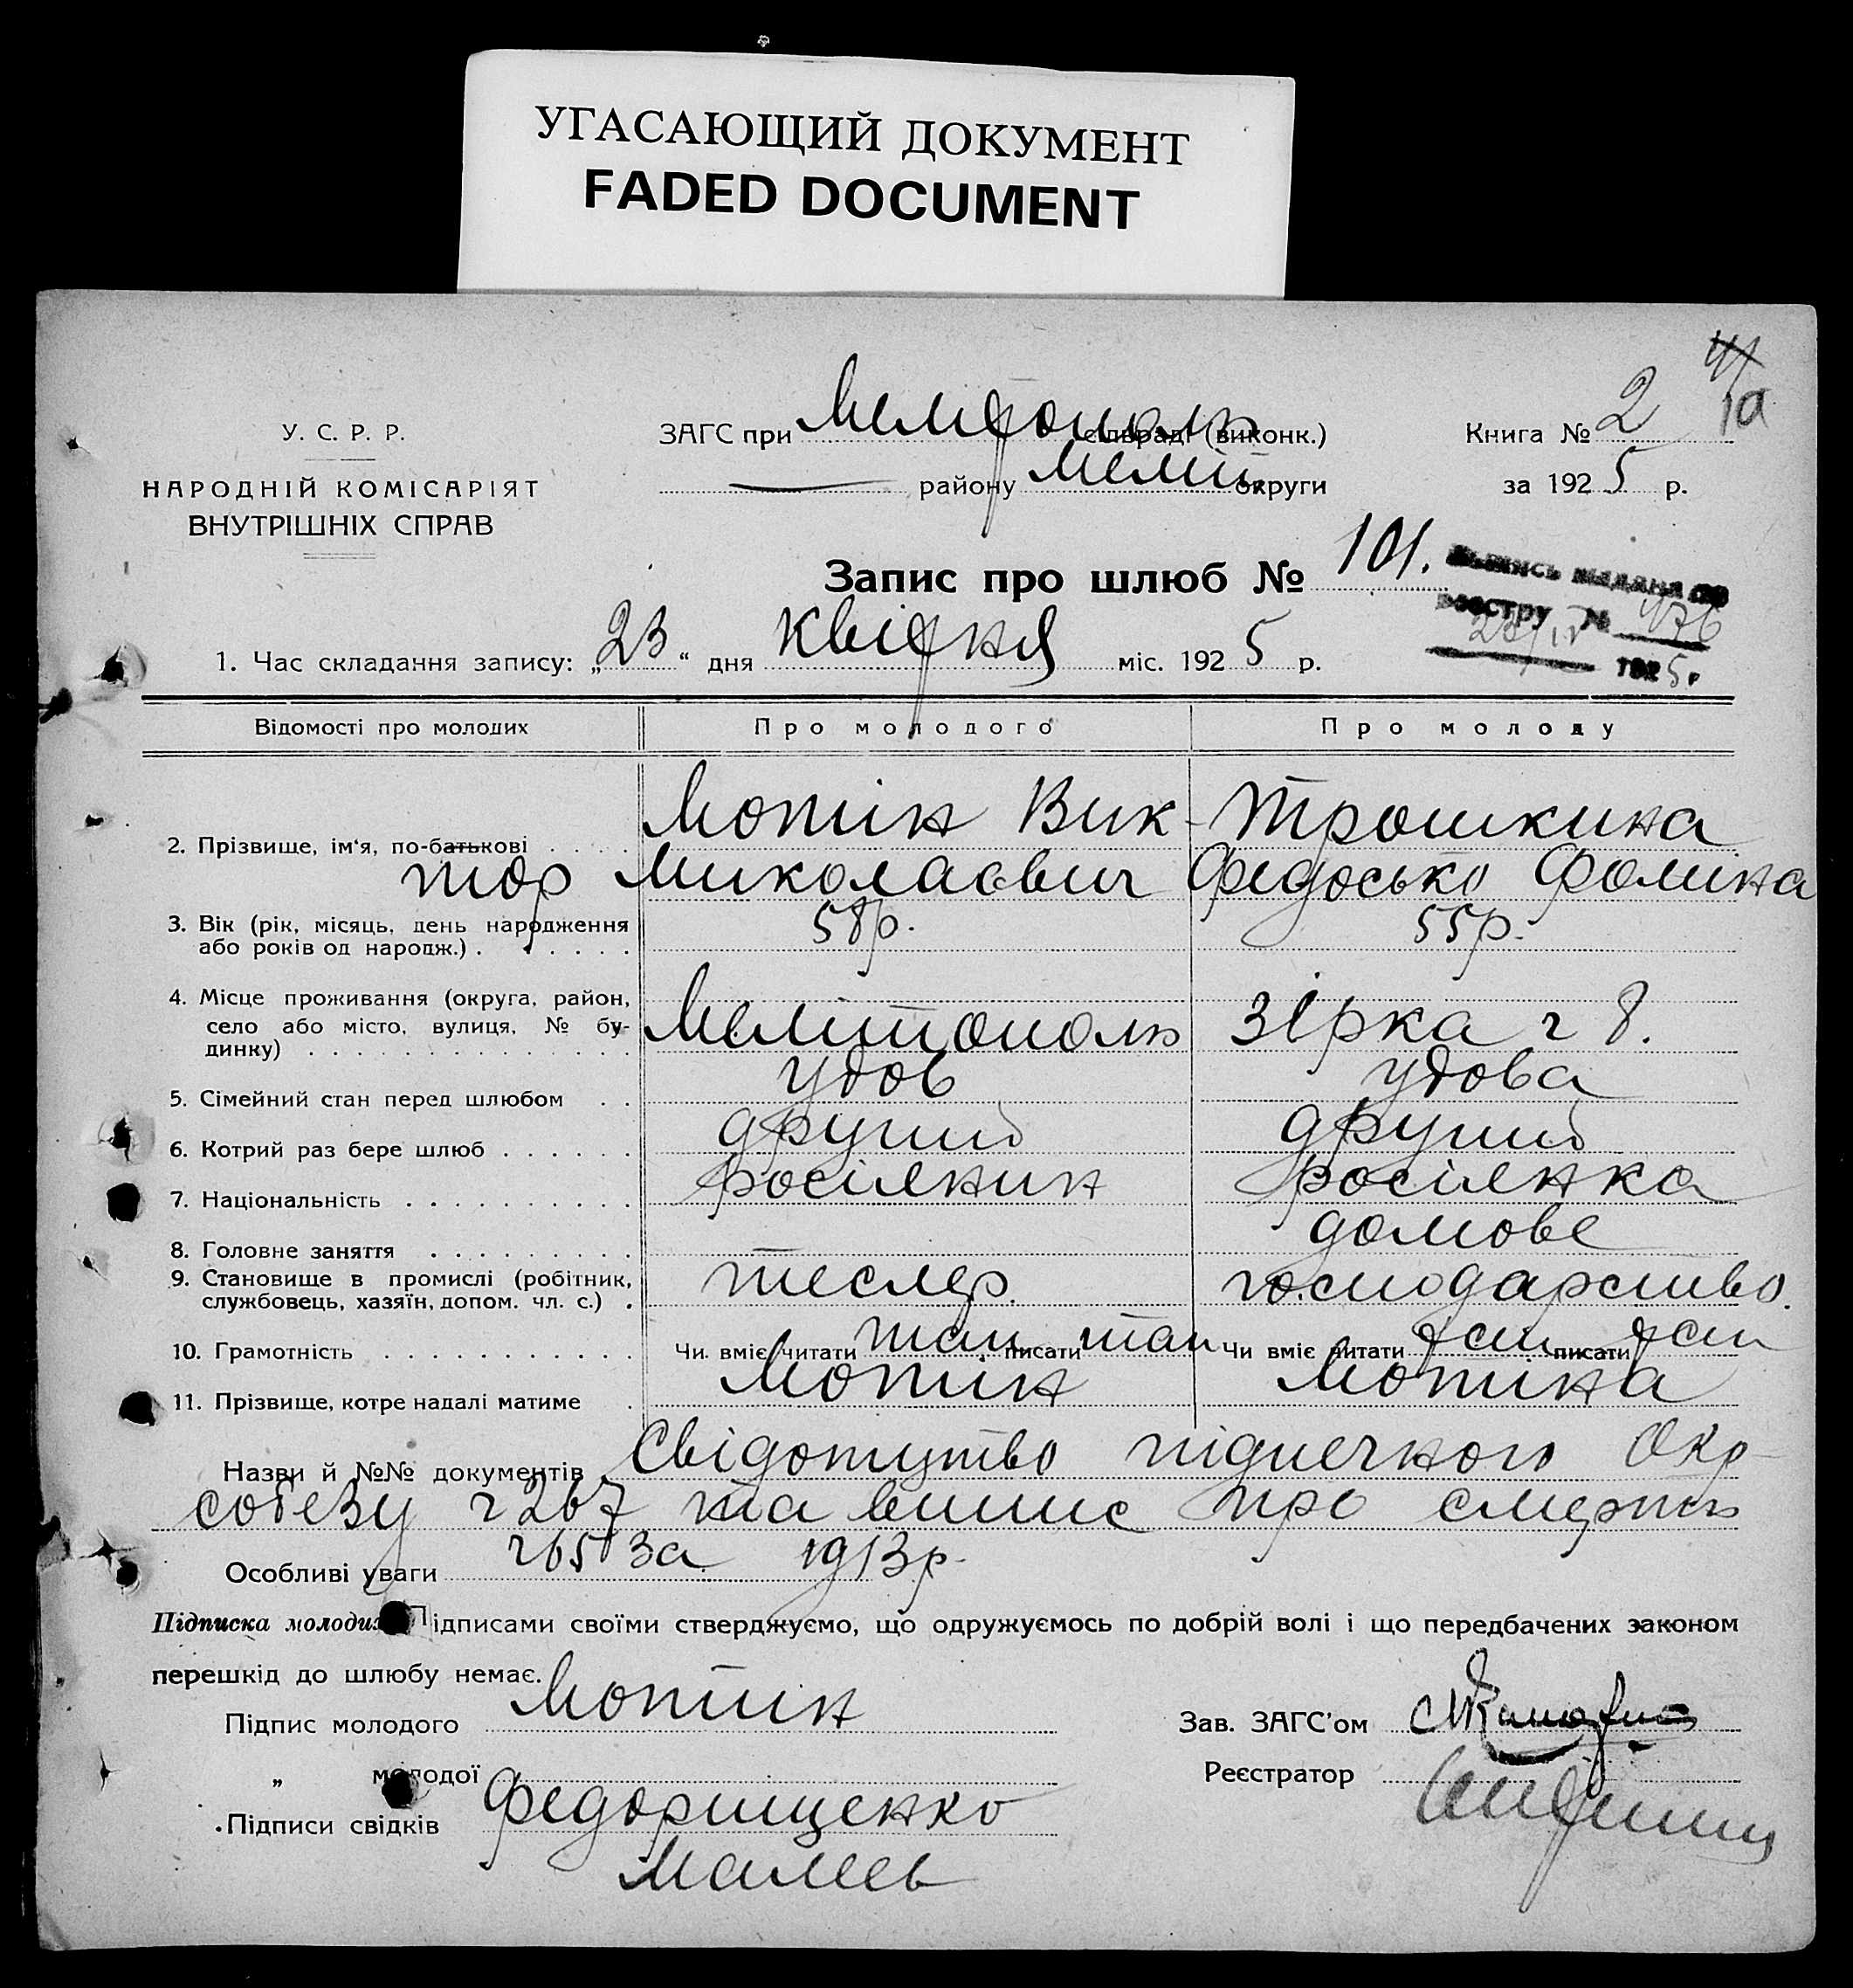 УГАСАЮЩИЙ ДОКУМЕНТ
FADED DOCUMENT
У. С. Р. Р.
НАРОДНІЙ КОМІСАРІЯТ
ВНУТРІШНІХ СПРАВ
ЗАГС при Мелітополь сільраді (виконк.)
— району Меліт. округи
Книга № 2
10
за 1925 р.
Запис про шлюб № 101.
реестру № 476
1925 г
1. Час складання запису: „23“ дня квітня міс. 1925 р.
Відомості про молодих
Про молодого
Про молоду
2. Прізвище, ім'я, по-батькові
Мотін Вик-
тор Миколаєвич
Трошкина
Федосько Фомина
3. Вік (рік, місяць, день народження
або років од народж.)
58р.
55р.
4. Місце проживання (округа, район,
село або місто, вулиця, № бу-
динку)
Мелітополь
Зірка ч 8.
5. Сімейний стан перед шлюбом
удов
удова
6. Котрий раз бере шлюб
другий
другий
7. Національність
росіянин
росіянка
8. Головне заняття
домове
9. Становище в промислі (робітник,
службовець, хазяїн, допом. чл. с.)
тесляр.
господарство.
10. Грамотність
Чи вміє читати так писати так
Чи вміє читати писати
11. Прізвище, котре надалі матиме
Мотін
Мотіна
Назви й №№ документів Свідотцтво підпечного Окр-
собезу ч 267 та випис про смерть
Особливі уваги ч 65 за 1913р.
Підписка молодих Підписами своїми стверджуємо, що одружуємось по добрій волі і що передбачених законом
перешкід до шлюбу немає.
Підпис молодого Мотин
Зав. ЗАГС'ом
„ молодої
Реєстратор
Підписи свідків Федорищенко
Малеев